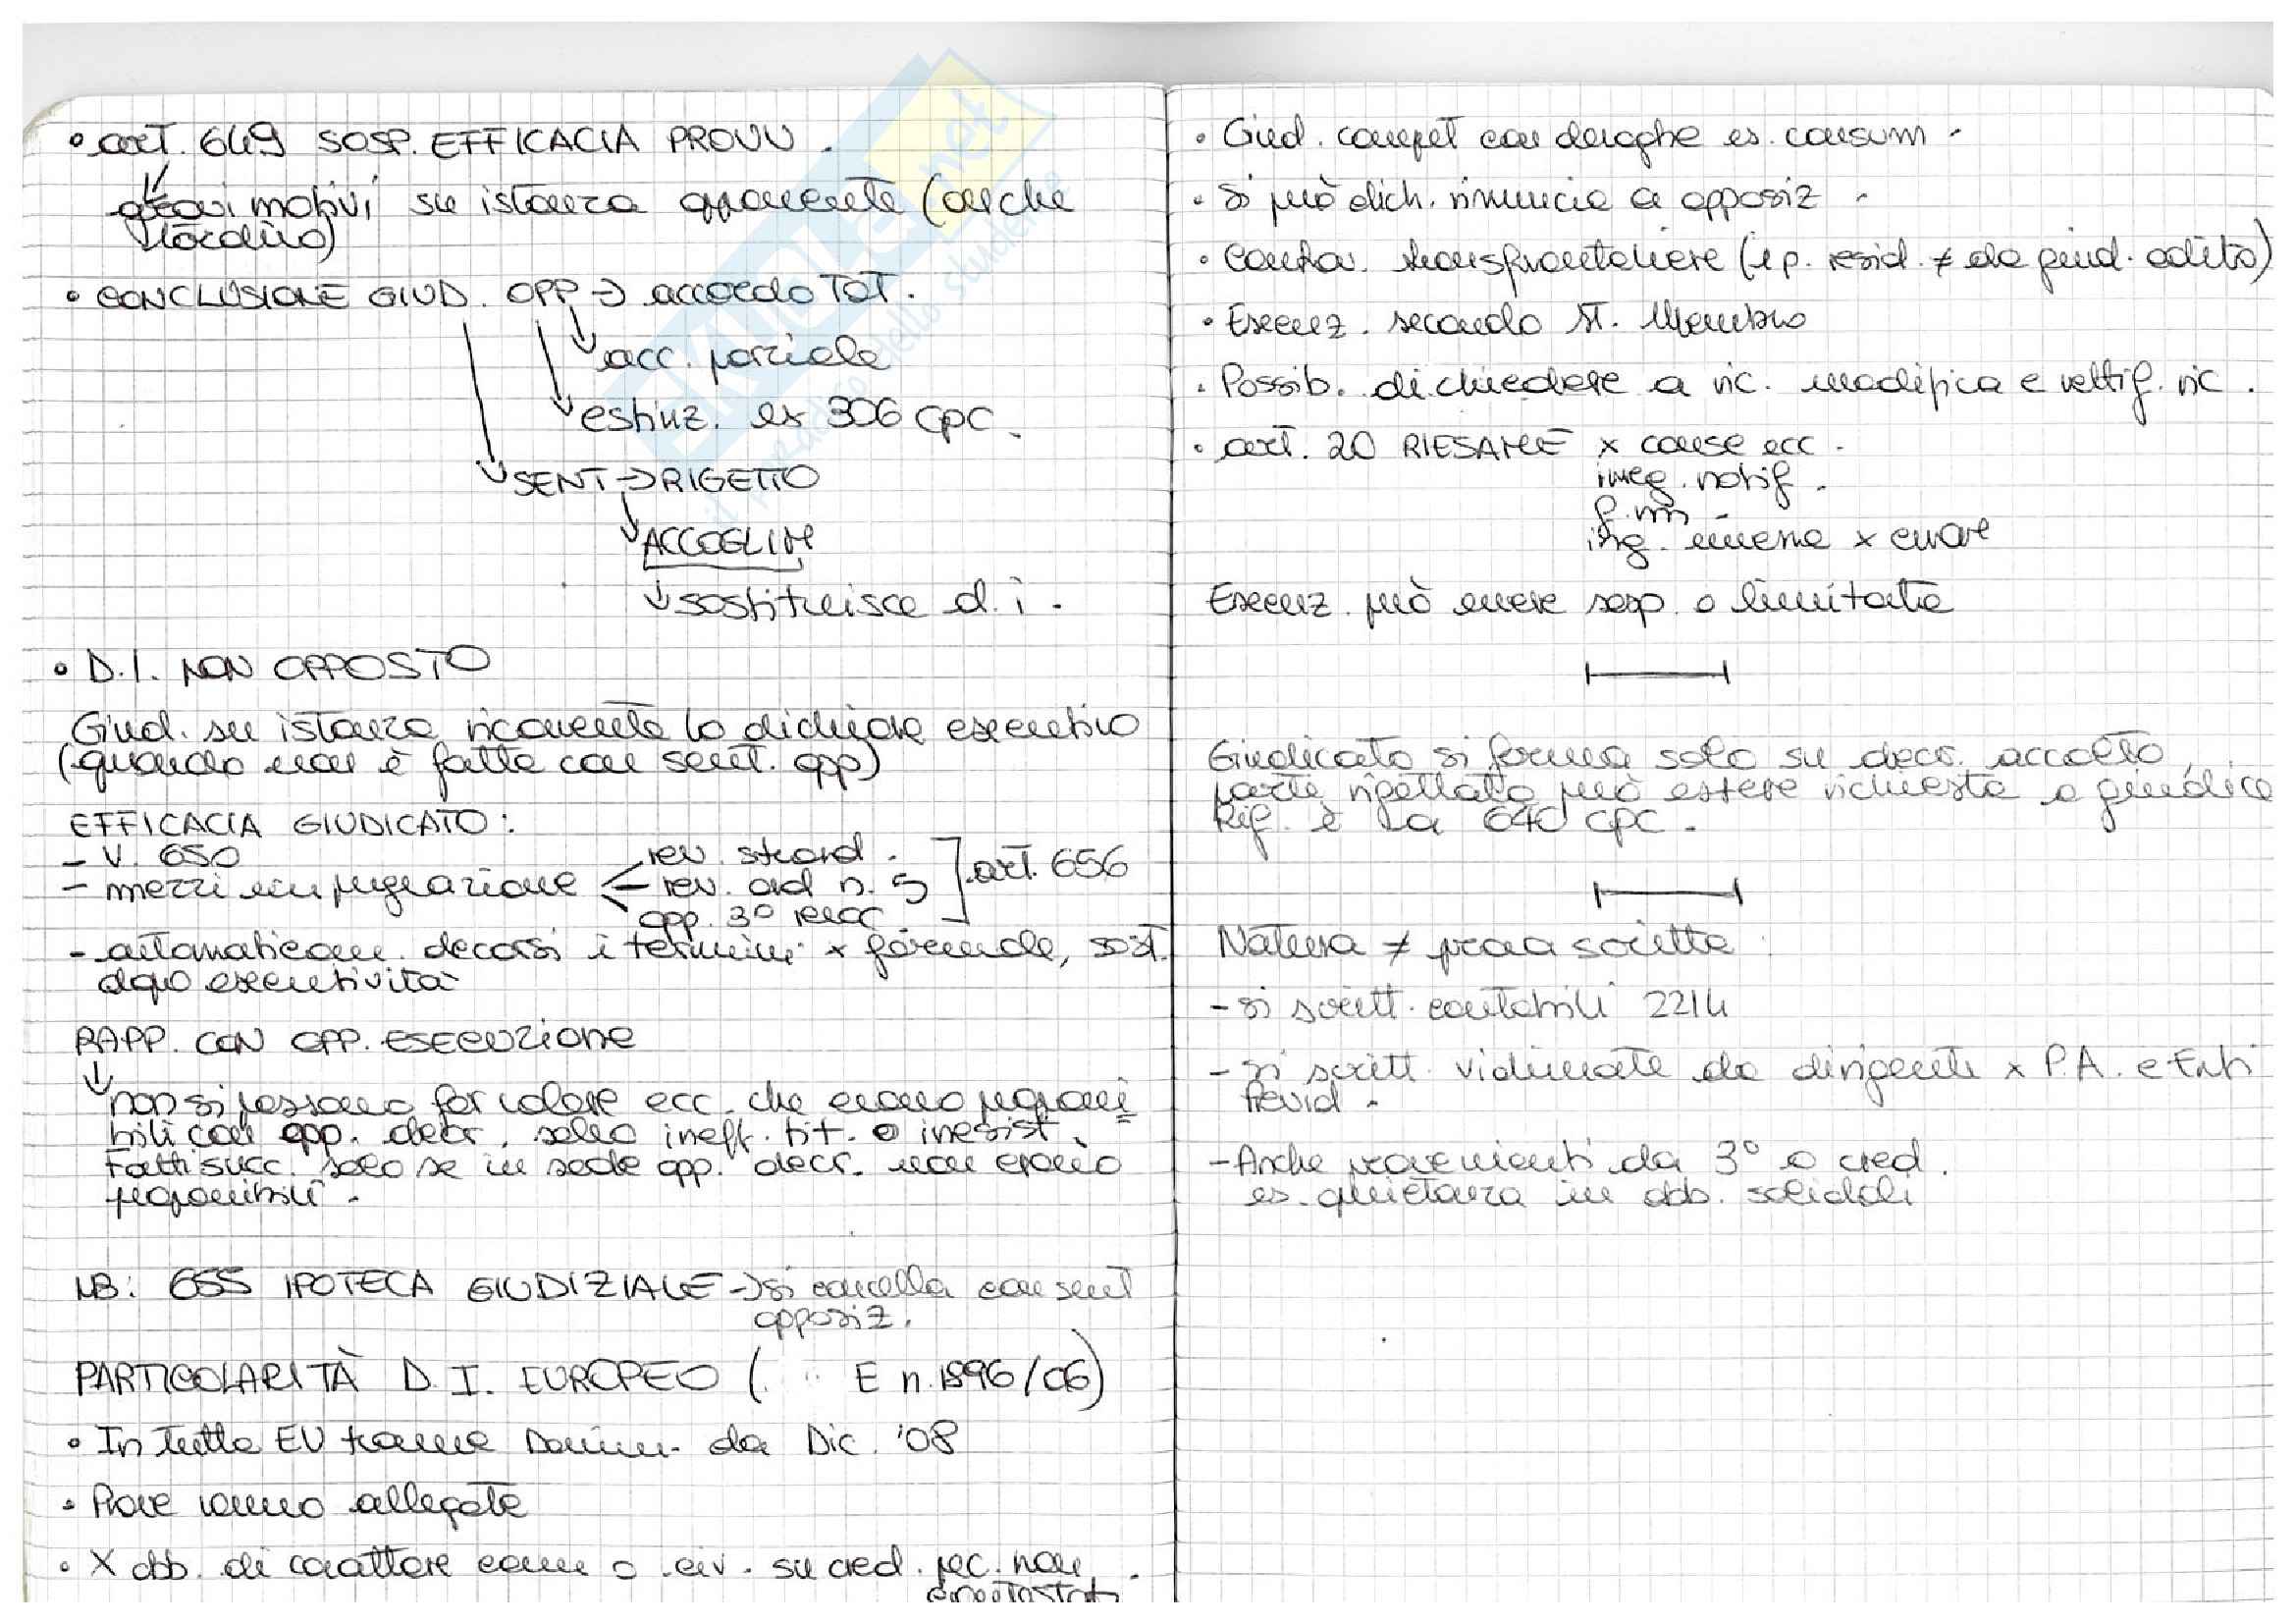 • art. 649 SOSP. EFFICACIA PROVV.
gravi motivi su istanza opponente (anche
locatizio)
• CONCLUSIONE GIUD. OPP → accordo TOT.
acc. parziale
estinz. ex 306 cpc.
SENT → RIGETTO
ACCOGLIM
sostituisce d.i.
• D.I. NON OPPOSTO
Giud. su istanza ricorrente lo dichiara esecutivo
(quando non è fatto con sent. opp)
EFFICACIA GIUDICATO:
- V. 650
- mezzi impugnazione
rev. straord.
rev. ord n. 5
opp. 3° revoc
art. 656
- automaticam. decorsi i termini x formale, sost.
dopo esecutività
RAPP. CON OPP. ESECUZIONE
non si possono far valere ecc. che erano proponi
bili con opp. decr., solo ineff. tit. o inesist.
Fatti succ. solo se in sede opp. decr. non erano
proponibili.
NB: 655 IPOTECA GIUDIZIALE → si cancella con sent
opposiz.
PARTICOLARITÀ D.I. EUROPEO ( E n. 1896/06)
• In tutta EU tranne Danim. da Dic. '08
• Prove vanno allegate
• X obb. di carattere comm o civ. su cred. pec. non
contestati
• Giud. compet con deroghe es. consum.
• Si può dich. rinuncia a opposiz.
• Controv. transfrontaliere (1 p. resid. ≠ da giud. adito)
• Esecuz. secondo ST. Membro
• Possib. di chiedere a ric. modifica e rettif. ric.
• art. 20 RIESAME x cause ecc.
irreg. notif.
f. m
ing. emessa x errore
Esecuz. può essere sosp. o limitata
Giudicato si forma solo su decr. accolto,
parte rigettata può essere richiesta a giudice
Rif. è la 640 cpc.
Natura ≠ prova scritta:
- si scritt. contabili 2214
- si scritt. vidimate da dirigente x P.A. e Enti
Previd.
- Anche provenienti da 3° o cred.
es. quietanza in obb. solidali